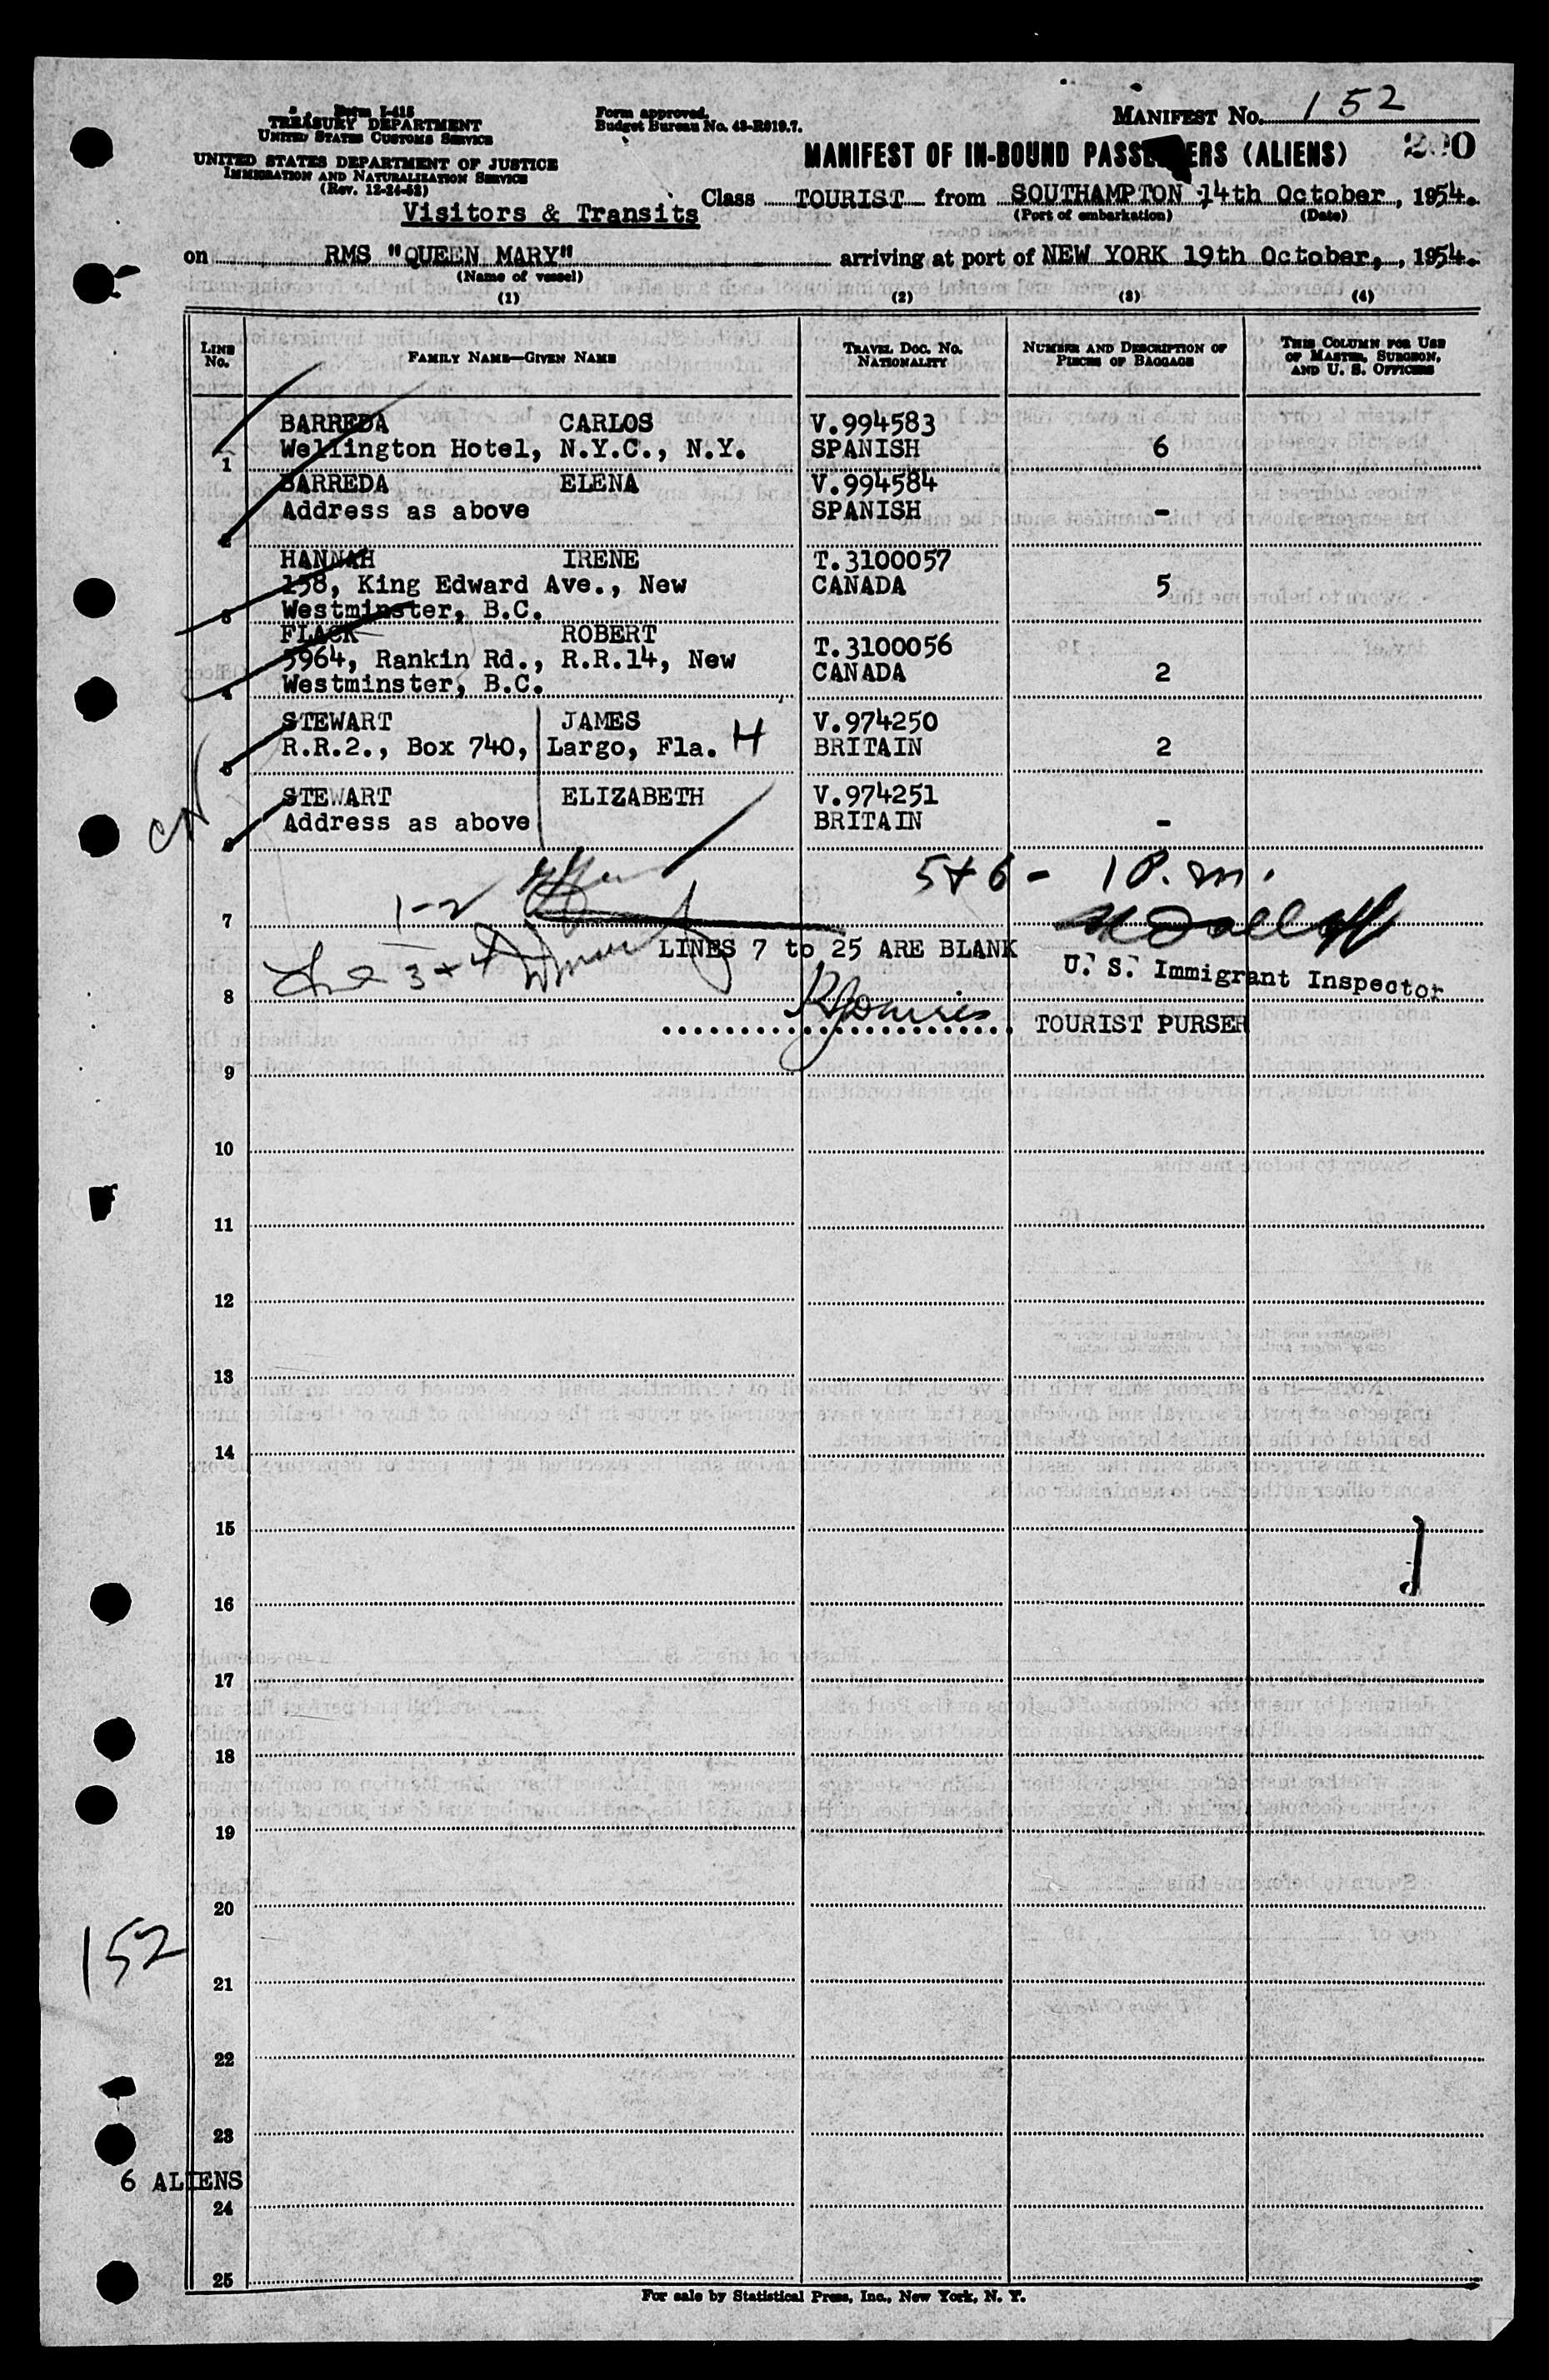 Form I-415
TREASURY DEPARTMENT
UNITED STATES CUSTOMS SERVICE
UNITED STATES DEPARTMENT OF JUSTICE
IMMIGRATION AND NATURALIZATION SERVICE
(Rev. 12-24-52)
Form approved.
Budget Bureau No. 43-R019.7.
MANIFEST No. 152
MANIFEST OF IN-BOUND PASSENGERS (ALIENS)
Visitors & Transits
Class TOURIST from SOUTHAMPTON 14th October, 1954.
(Port of embarkation) (Date)
on RMS "QUEEN MARY" arriving at port of NEW YORK 19th October, , 1954.
(Name of vessel)
(1) (2) (3) (4)
LINE No. FAMILY NAME—GIVEN NAME TRAVEL DOC. NO. NATIONALITY NUMBER AND DESCRIPTION OF PIECES OF BAGGAGE THIS COLUMN FOR USE OF MASTER, SURGEON, AND U. S. OFFICERS
BARREDA CARLOS V.994583
1 Wellington Hotel, N.Y.C., N.Y. SPANISH 6
BARREDA ELENA V.994584
2 Address as above SPANISH -
HANNAH IRENE T.3100057
158, King Edward Ave., New CANADA 5
3 Westminster, B.C.
FLACK ROBERT T.3100056
5964, Rankin Rd., R.R.14, New CANADA 2
4 Westminster, B.C.
STEWART JAMES V.974250
5 R.R.2., Box 740, Largo, Fla. H BRITAIN 2
STEWART ELIZABETH V.974251
6 Address as above BRITAIN -
5+6 - 1 P.m.
1-2
7
LINES 7 to 25 ARE BLANK
3+4
U. S. Immigrant Inspector
8
TOURIST PURSER
9
10
11
12
13
14
15
16
17
18
19
20
152
21
22
23
6 ALIENS
24
25
For sale by Statistical Press, Inc., New York, N. Y.